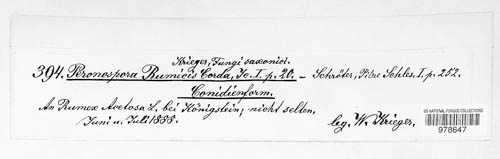 Krieger, Fungi saxonici.
394. Peronospora Rumicis Corda, Ic. I. p. 20. – Schröter, Pilze Schles. I. p. 252.
Conidienform.
An Rumex Acetosa L. bei Königstein, nicht selten,
Juni u. Juli 1888. leg. W. Krieger.
US NATIONAL FUNGUS COLLECTIONS
978647